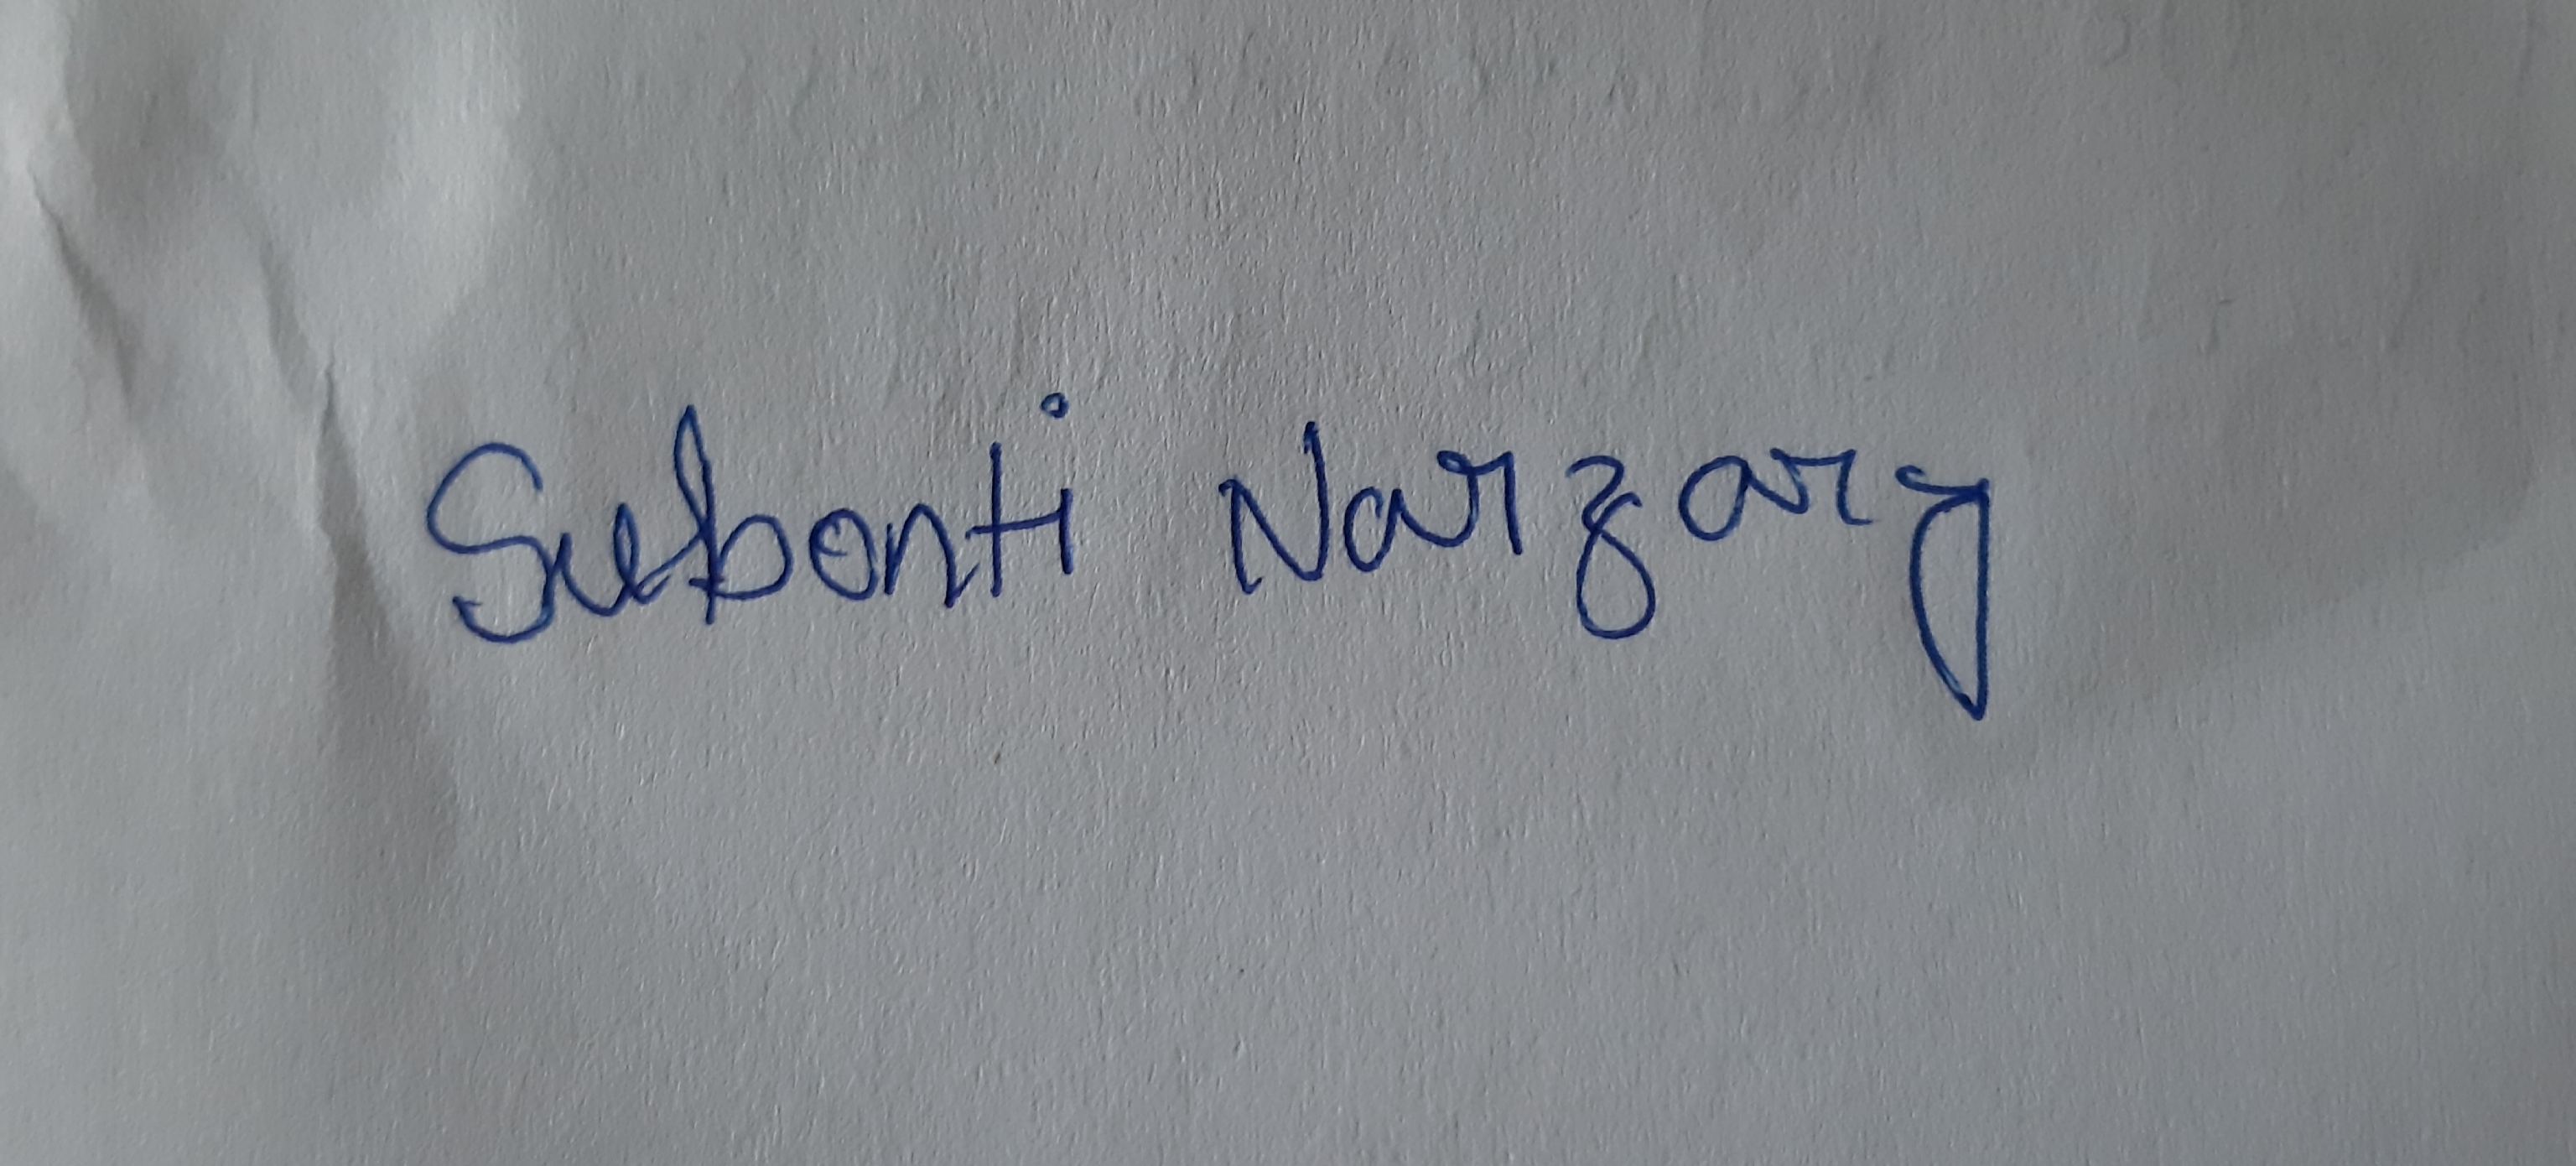 Subonti Narzary